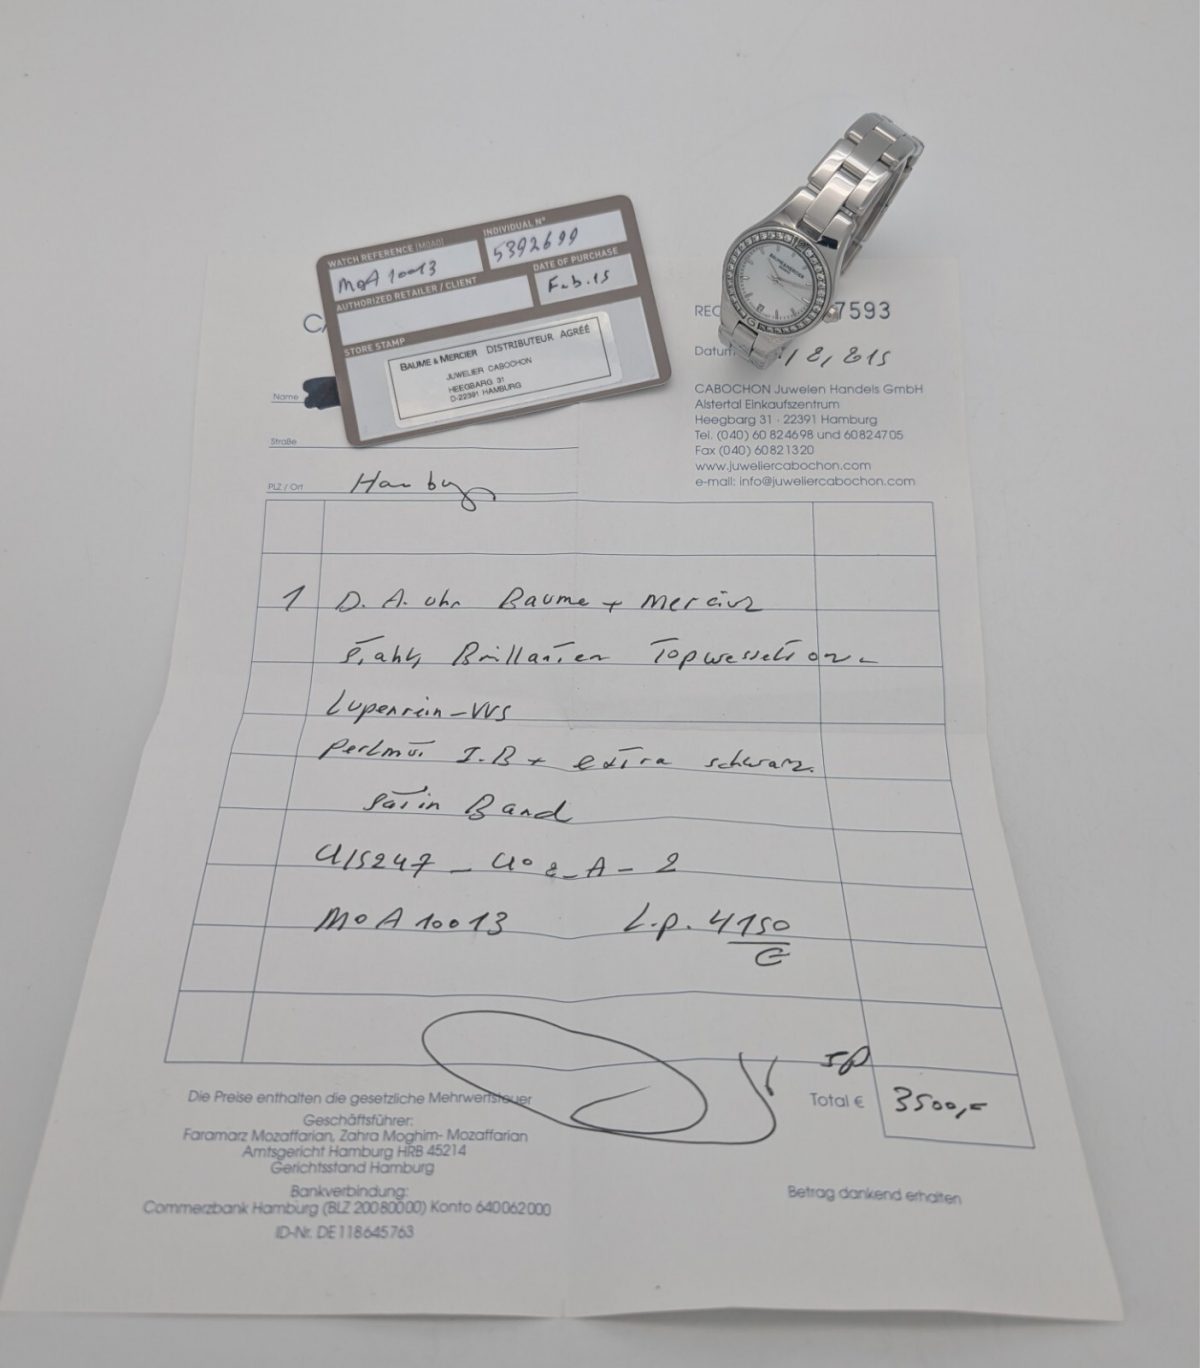 WATCH REFERENCE (MOA0)
INDIVIDUAL N°
MoA 10013
5392699
AUTHORIZED RETAILER / CLIENT
DATE OF PURCHASE
Feb. 15
STORE STAMP
BAUME & MERCIER DISTRIBUTEUR AGRÉÉ
JUWELIER CABOCHON
HEEGBARG 31
D-22391 HAMBURG
BAUME & MERCIER
7593
Datum
CABOCHON Juwelen Handels GmbH
Alstertal Einkaufszentrum
Heegbarg 31 · 22391 Hamburg
Tel. (040) 60 824698 und 60824705
Fax (040) 60821320
www.juweliercabochon.com
e-mail: info@juweliercabochon.com
Name
Straße
PLZ / Ort Hamburg
1 D. A. Uhr Baume + Mercier
Stahl, Brillanten Topwesselton -
Lupenrein - VVS
Perlmut I.B + extra schwarz.
Satin Band
MoA 10013 L.p. 4150
€
Total € 3500,-
Die Preise enthalten die gesetzliche Mehrwertsteuer
Geschäftsführer:
Faramarz Mozaffarian, Zahra Moghim- Mozaffarian
Amtsgericht Hamburg HRB 45214
Gerichtsstand Hamburg
Bankverbindung:
Commerzbank Hamburg (BLZ 20080000) Konto 640062000
ID-Nr. DE118645763
Betrag dankend erhalten